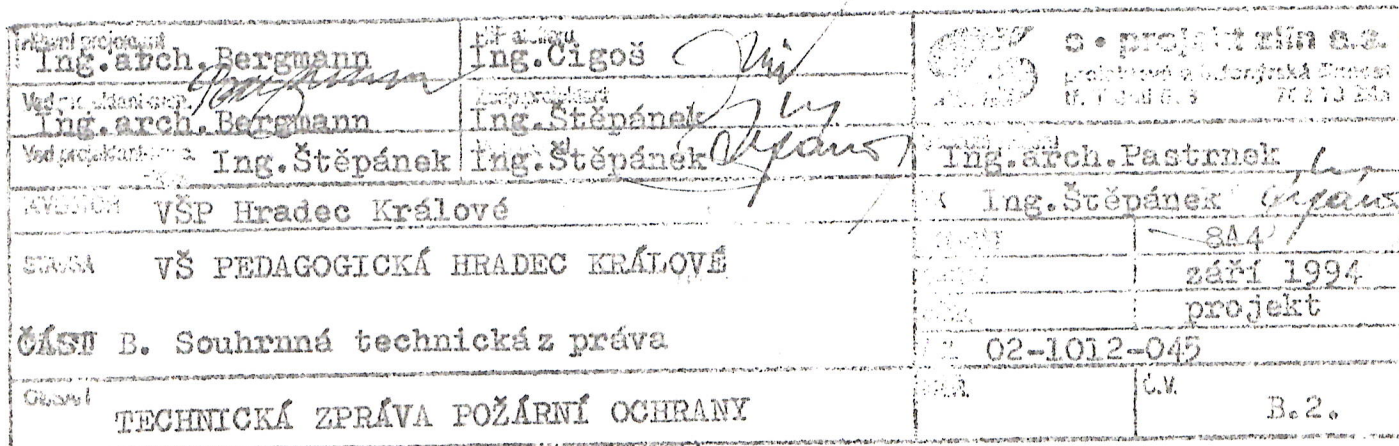 Ing.arch.Bergmann
Ing.Cigoš
Ing.arch.Bergmann
Ing.Štěpánek
Ing.Štěpánek
Ing.Štěpánek
S • projekt zlín a.s.
Ing.arch.Pastrnek
Ing.Štěpánek
VŠP Hradec Králové
8A4
STAVBA VŠ PEDAGOGICKÁ HRADEC KRÁLOVÉ
září 1994
projekt
ČÁST B. Souhrnná technickáz práva
02-1012-045
Obsah TECHNICKÁ ZPRÁVA POŽÁRNÍ OCHRANY
Č.V.
B.2.